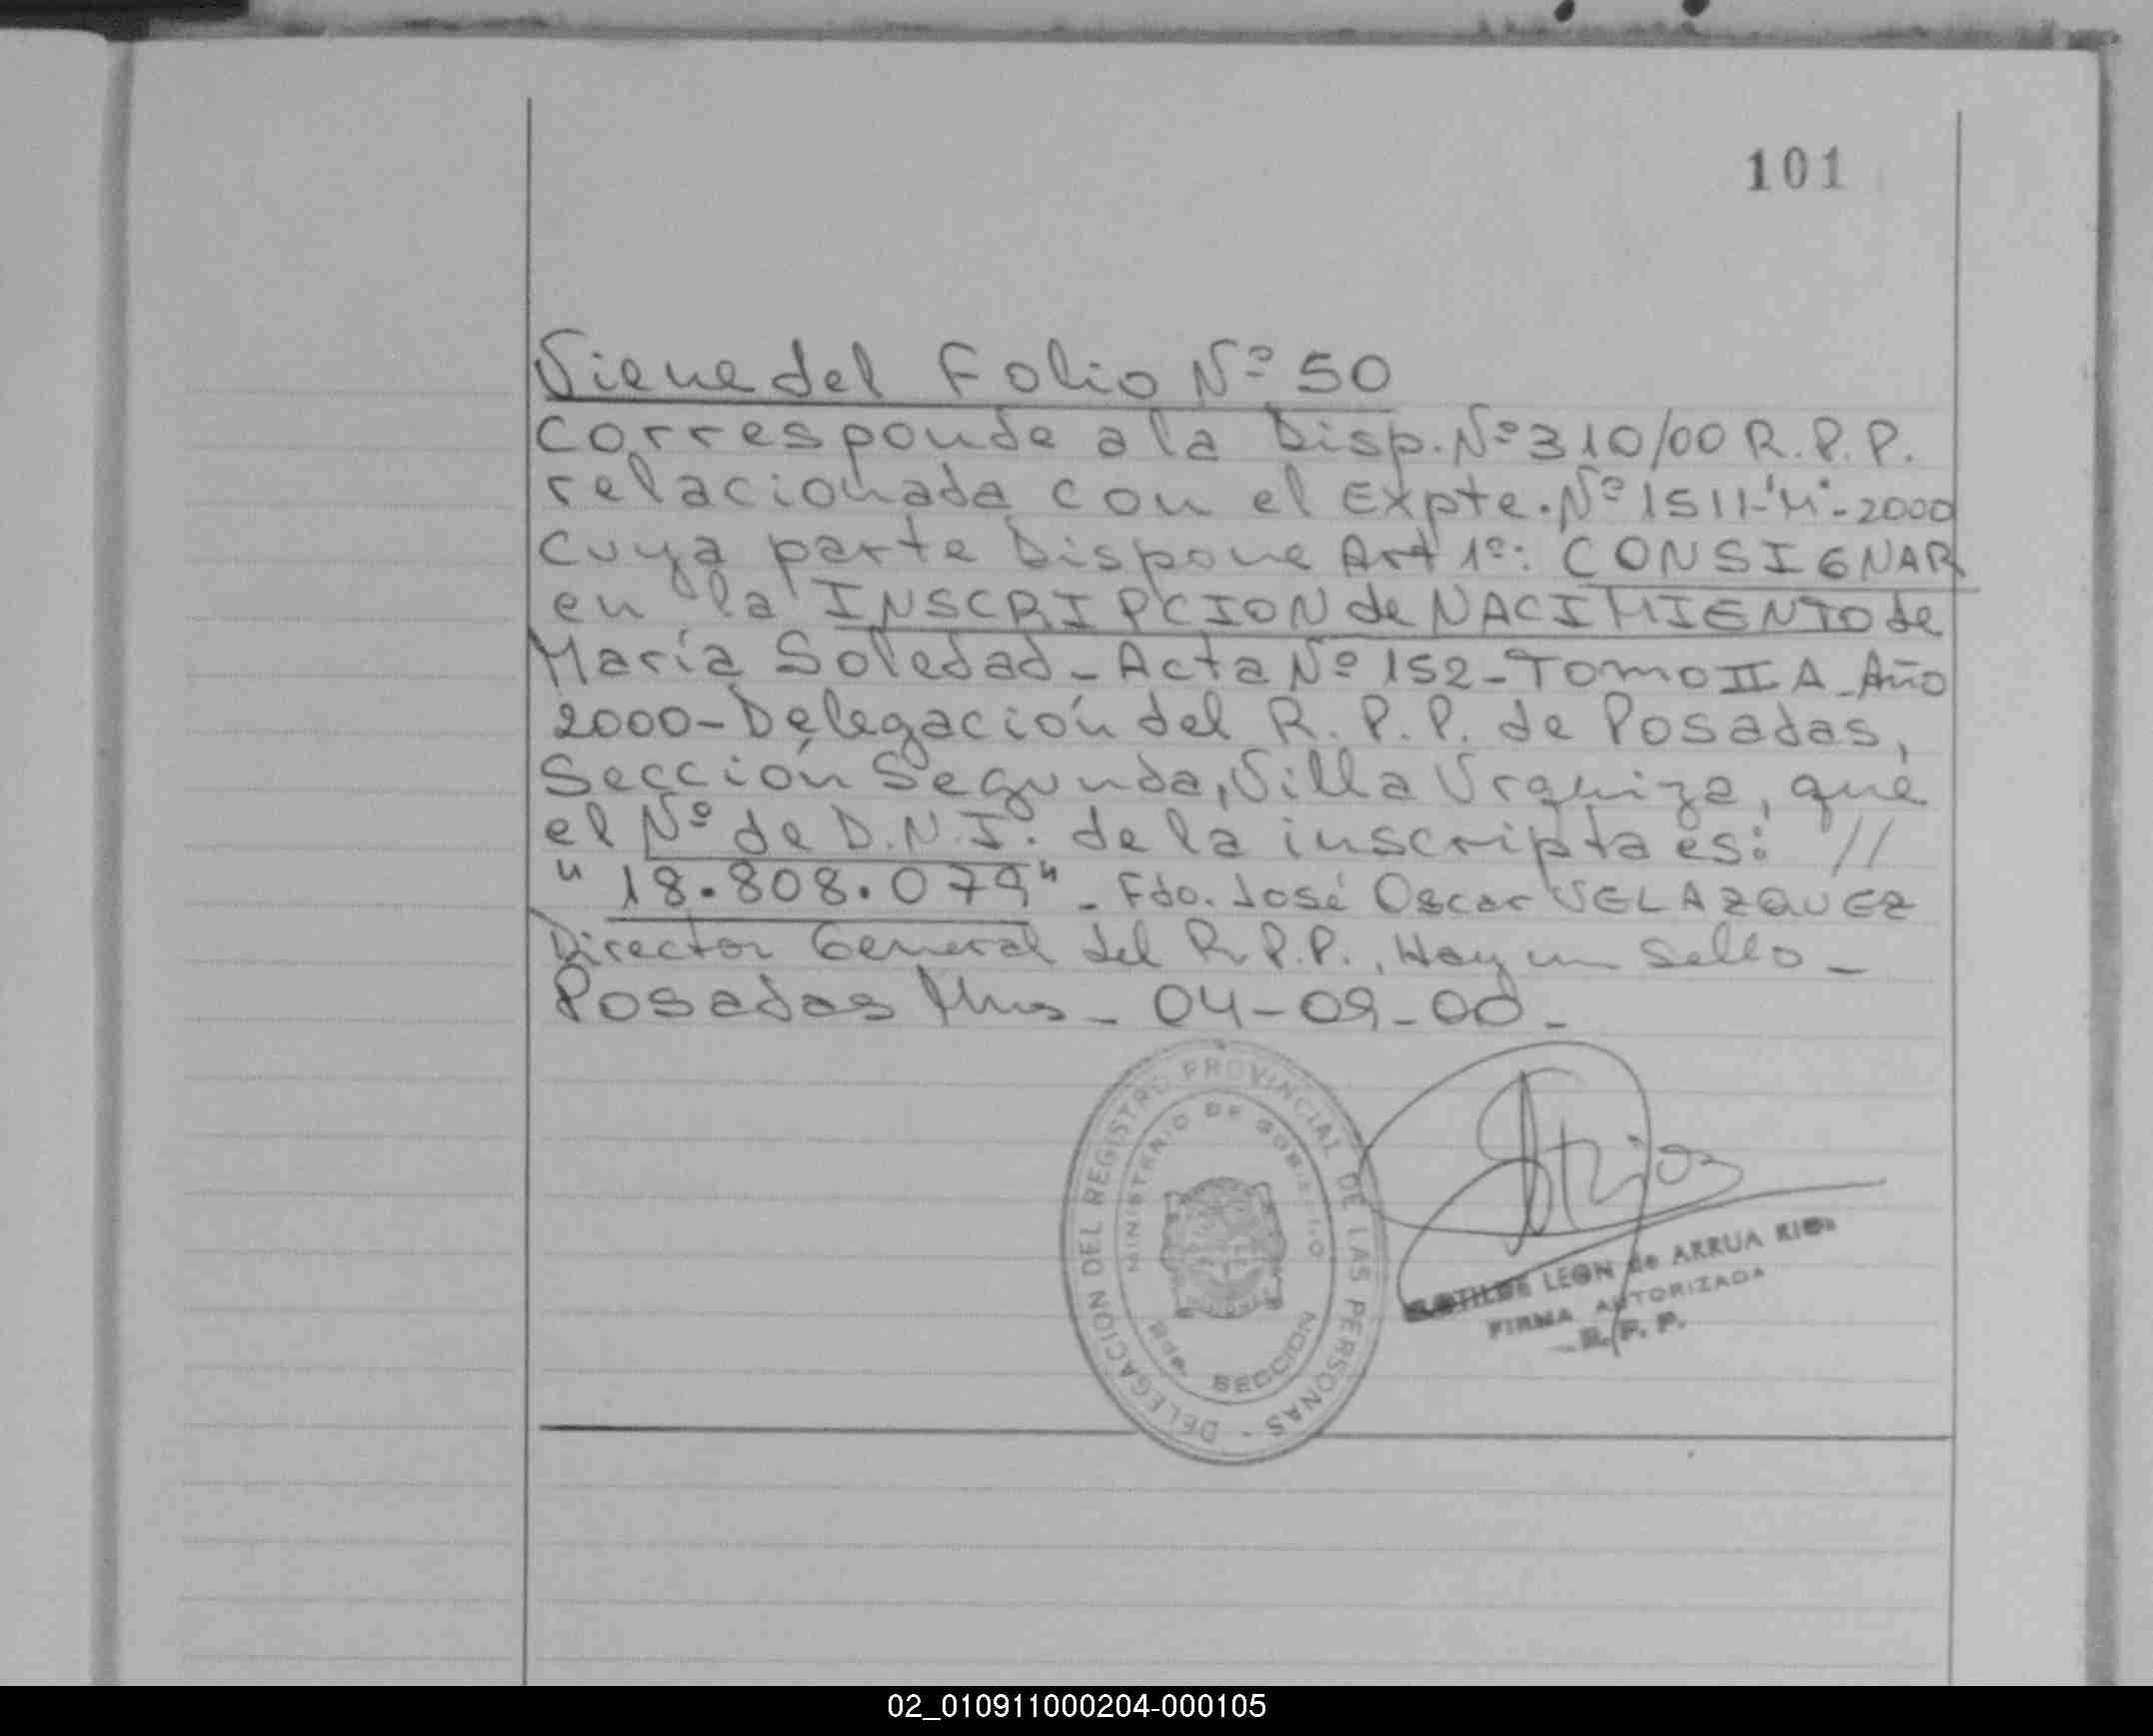 101
Viene del Folio Nº 50
Corresponde a la Disp. Nº 310/00 R.P.P.
relacionada con el Expte. Nº 1511-"M"-2000
cuya parte Dispone Art 1º: CONSIGNAR
en la INSCRIPCION de NACIMIENTO de
María Soledad - Acta Nº 152 - Tomo II A - Año
2000 - Delegación del R. P. P. de Posadas,
Sección Segunda, Villa Urquiza, que
el Nº de D.N.I. de la inscripta es: //
"18.808.079" - Fdo. José Oscar VELAZQUEZ
Director General del R.P.P., Hay un Sello -
Posadas Mnes - 04-09-00 -
DELEGACION DEL REGISTRO PROVINCIAL DE LAS PERSONAS -
MINISTERIO DE GOBIERNO
SECCION
CLOTILDE LEON de ARRUA RIOS
FIRMA AUTORIZADA
R. P. P.
02_010911000204-000105